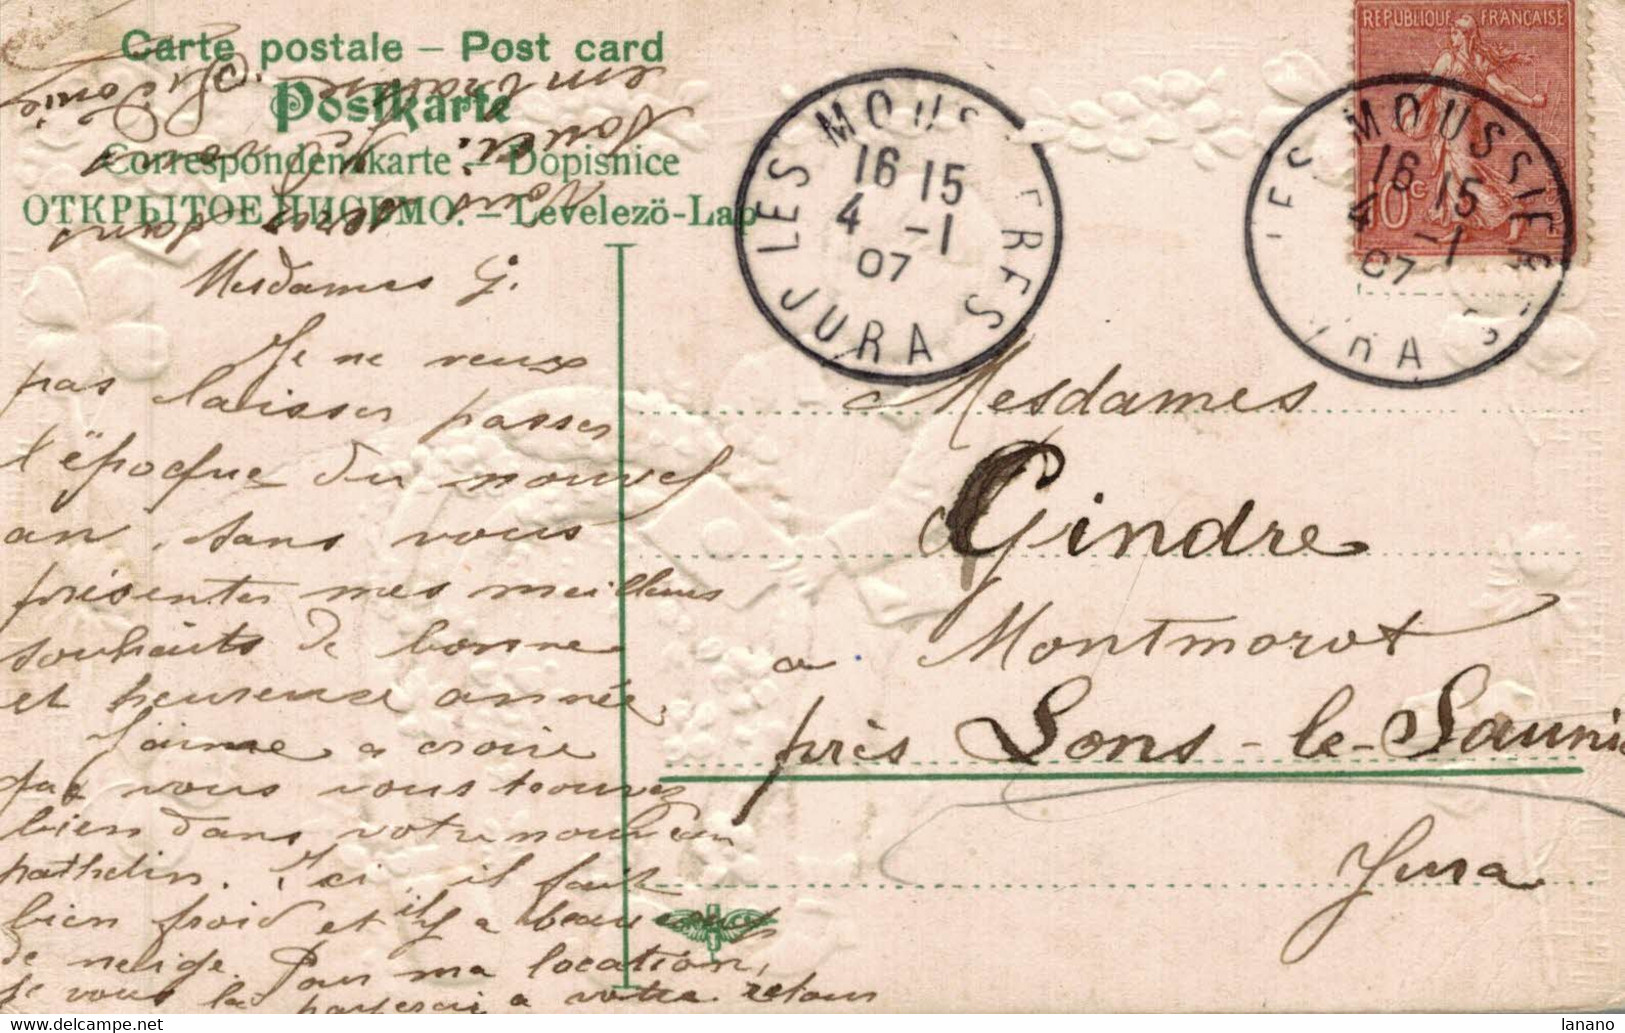 Carte postale – Post card
Postkarte
Correspondenzkarte – Dopisnice
ОТКРЫТОЕ ПИСЬМО. – Levelezö-Lap
REPUBLIQUE FRANÇAISE
10c
LES MOUSSIERES
16 15
4 -1
07
JURA
LES MOUSSIERES
16 15
4 -1
07
JURA
Mesdames G.
Je ne veux
pas laisser passer
l'époque du nouvel
an, sans vous
présenter mes meilleurs
souhaits de bonne
et heureuse année.
J'aime a croire
que vous vous trouvez
bien dans votre nouveau
pathelin. Ici, il fait
bien froid et il y a beaucoup
de neige. Pour ma location,
je vous la payerai a votre retour
Nous
serez sans
souci. Je vous
embrasse.
Sidonie
Mesdames
Gindre
a Montmorot
près Lons-le-Saunier
Jura
lanano